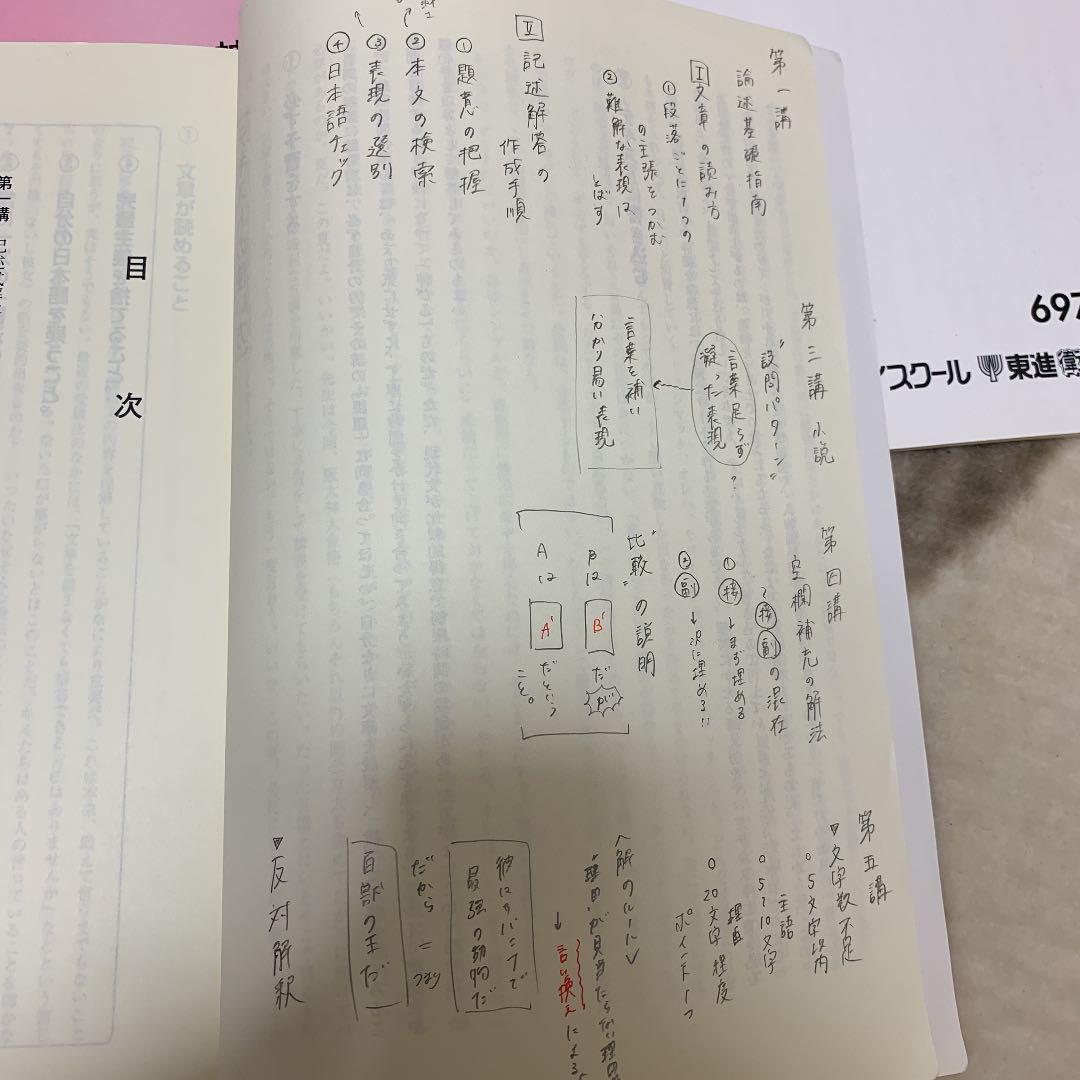 第一講
論述基礎指南
Ⅰ 文章の読み方
① 段落ごとに1つの
の主張をつかむ
② 難解な表現は、
とばす
Ⅱ 記述解答の
作成手順
① 題意の把握
② 本文の検索
③ 表現の選別
④ 日本語チェック
第三講 小説
"設問パターン"
言葉足らず?
凝った表現
言葉を補い
分かり易い表現
第四講
空欄補充の解法
~接 副の混在
① 接 → まず埋める
② 副 → 次に埋める!!
"比較"の説明
Bは B' だが
Aは A' だという
こと。
第五講
▽文字数不足
○ 5文字以内
主語
○ 5~10文字
理由
○ 20文字程度
ポイント一つ
<解のルール>
"理由"が見当たらない理由
→ 言い換えによる
彼はカバンフで
最強の動物だ
だから = つまり
百部の王だ
▽反対解釈
目次
第一講
697
イスクール 東進衛